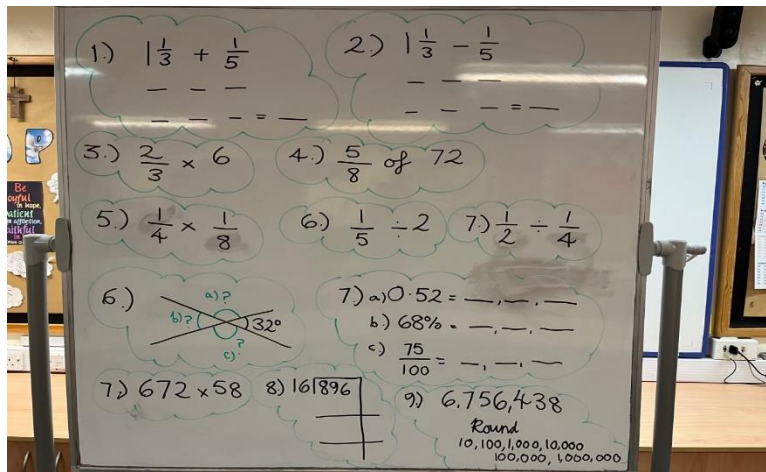 1.) 1 1/3 + 1/5
_ _ _
_ _ _ = _
2.) 1 1/3 - 1/5
_ _ _
_ _ _ = _
3.) 2/3 × 6
4.) 5/8 of 72
5.) 1/4 × 1/8
6.) 1/5 ÷ 2
7.) 1/2 ÷ 1/4
6.)
a)?
b)?
32°
?
c)
7) a) 0.52 = _, _, _
b.) 68% = _, _, _
c) 75/100 = _, _, _
7.) 672 × 58
8) 16 896
9) 6,756,438
Round
10, 100, 1,000, 10,000
100,000, 1,000,000
Be
in hope,
in affliction,